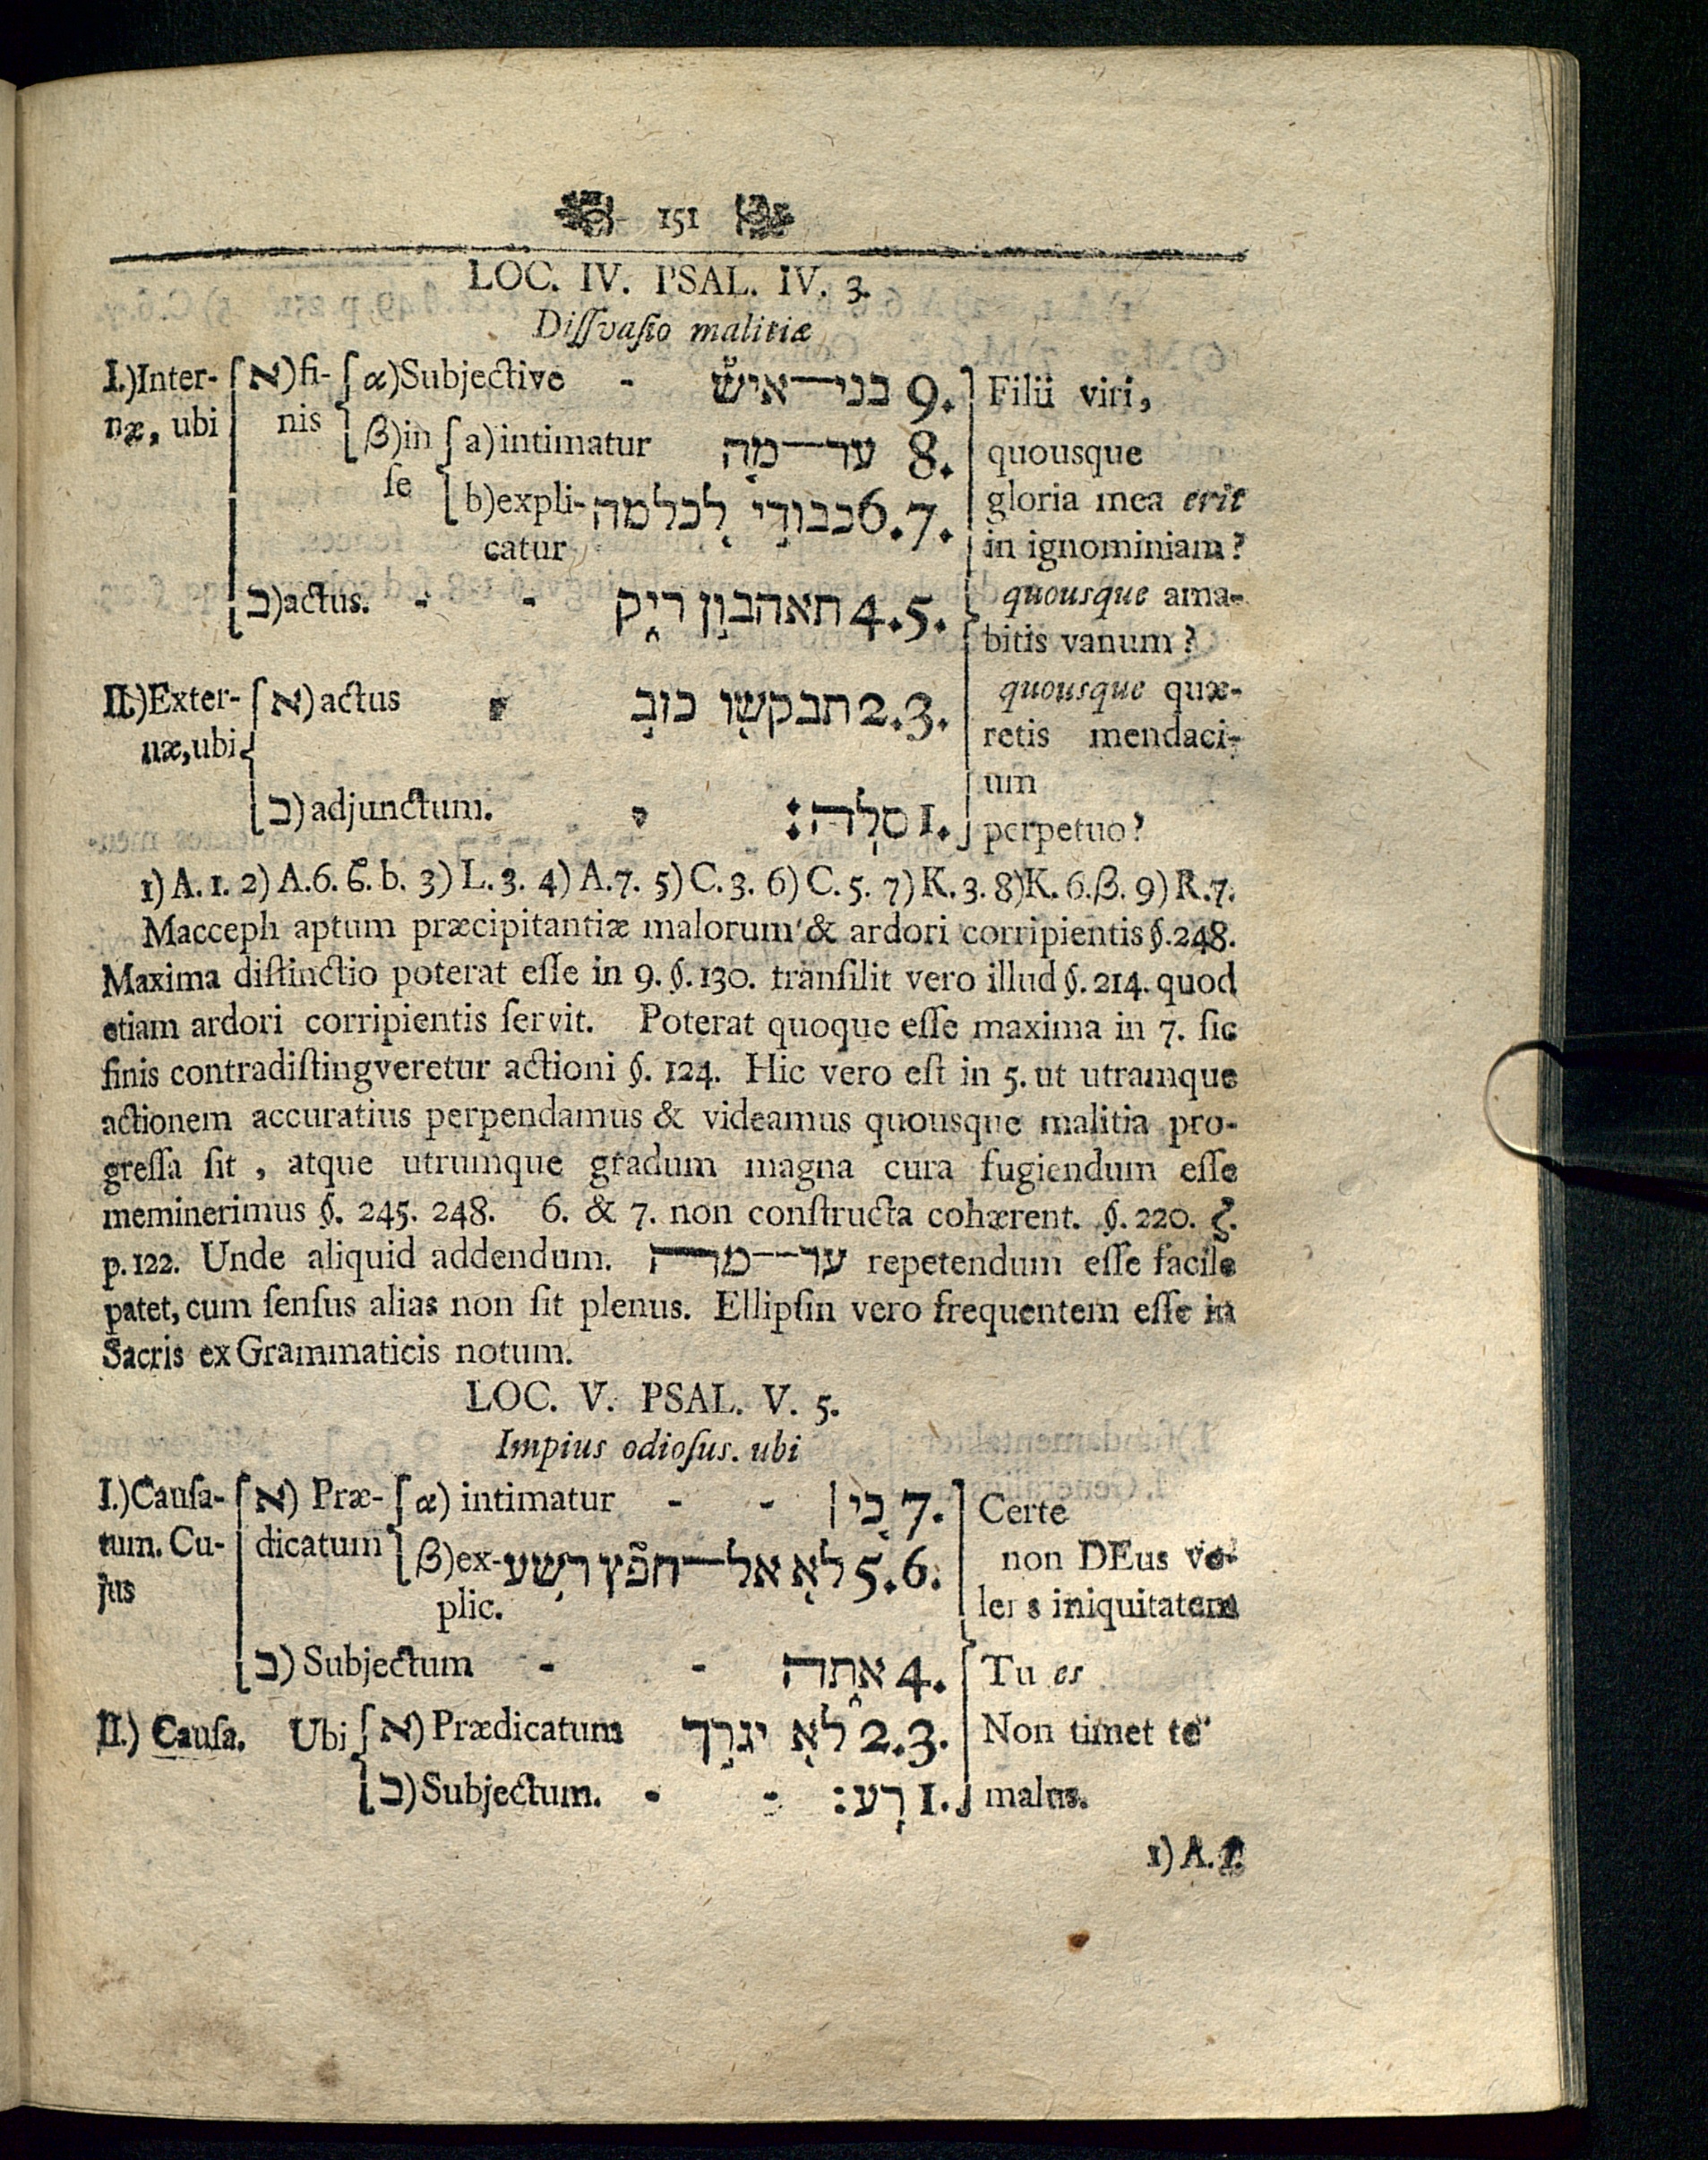 151
LOC. IV. PSAL. IV. 3.
Diſſvaſio malitiæ
I.)Inter- א)fi- α)Subjective - בני־איש 9. Filii viri,
næ, ubi nis β)in a)intimatur עד־מה 8. quousque
ſe b)expli- כבודי לכלמה 6.7. gloria mea erit
catur in ignominiam?
ב)actus. - - תאהבון ריק 4.5. quousque ama-
bitis vanum?
II.)Exter- א)actus תבקשו כזב 2.3. quousque quæ-
næ,ubi retis mendaci-
um
ב)adjunctum. סלה: 1. perpetuo?
1) A. 1. 2) A.6. ϐ. b. 3) L. 3. 4) A.7. 5) C. 3. 6) C. 5. 7) K. 3. 8)K. 6.β. 9) R.7.
Macceph aptum præcipitantiæ malorum & ardori corripientis §.248.
Maxima diſtinctio poterat eſſe in 9. §. 130. tranſilit vero illud §. 214. quod
etiam ardori corripientis ſervit. Poterat quoque eſſe maxima in 7. ſic
finis contradiſtingveretur actioni §. 124. Hic vero eſt in 5. ut utramque
actionem accuratius perpendamus & videamus quousque malitia pro-
greſſa ſit , atque utrumque gradum magna cura fugiendum eſſe
meminerimus §. 245. 248. 6. & 7. non conſtructa cohærent. §. 220. ζ.
p. 122. Unde aliquid addendum. עד־־מה repetendum eſſe facile
patet, cum ſenſus alias non ſit plenus. Ellipſin vero frequentem eſſe in
Sacris ex Grammaticis notum.
LOC. V. PSAL. V. 5.
Impius odioſus. ubi
I.)Cauſa- א) Præ- α) intimatur - - כי׀ 7. Certe
tum. Cu- dicatum β)ex- לא אל־חפץ רשע 5.6. non DEus vo-
jus plic. lens iniquitatem
ב) Subjectum - - אתה 4. Tu es
II.) Cauſa. Ubi א) Prædicatum לא יגרך 2.3. Non timet te
ב)Subjectum. - - רע: 1. malus.
1) A. 1.